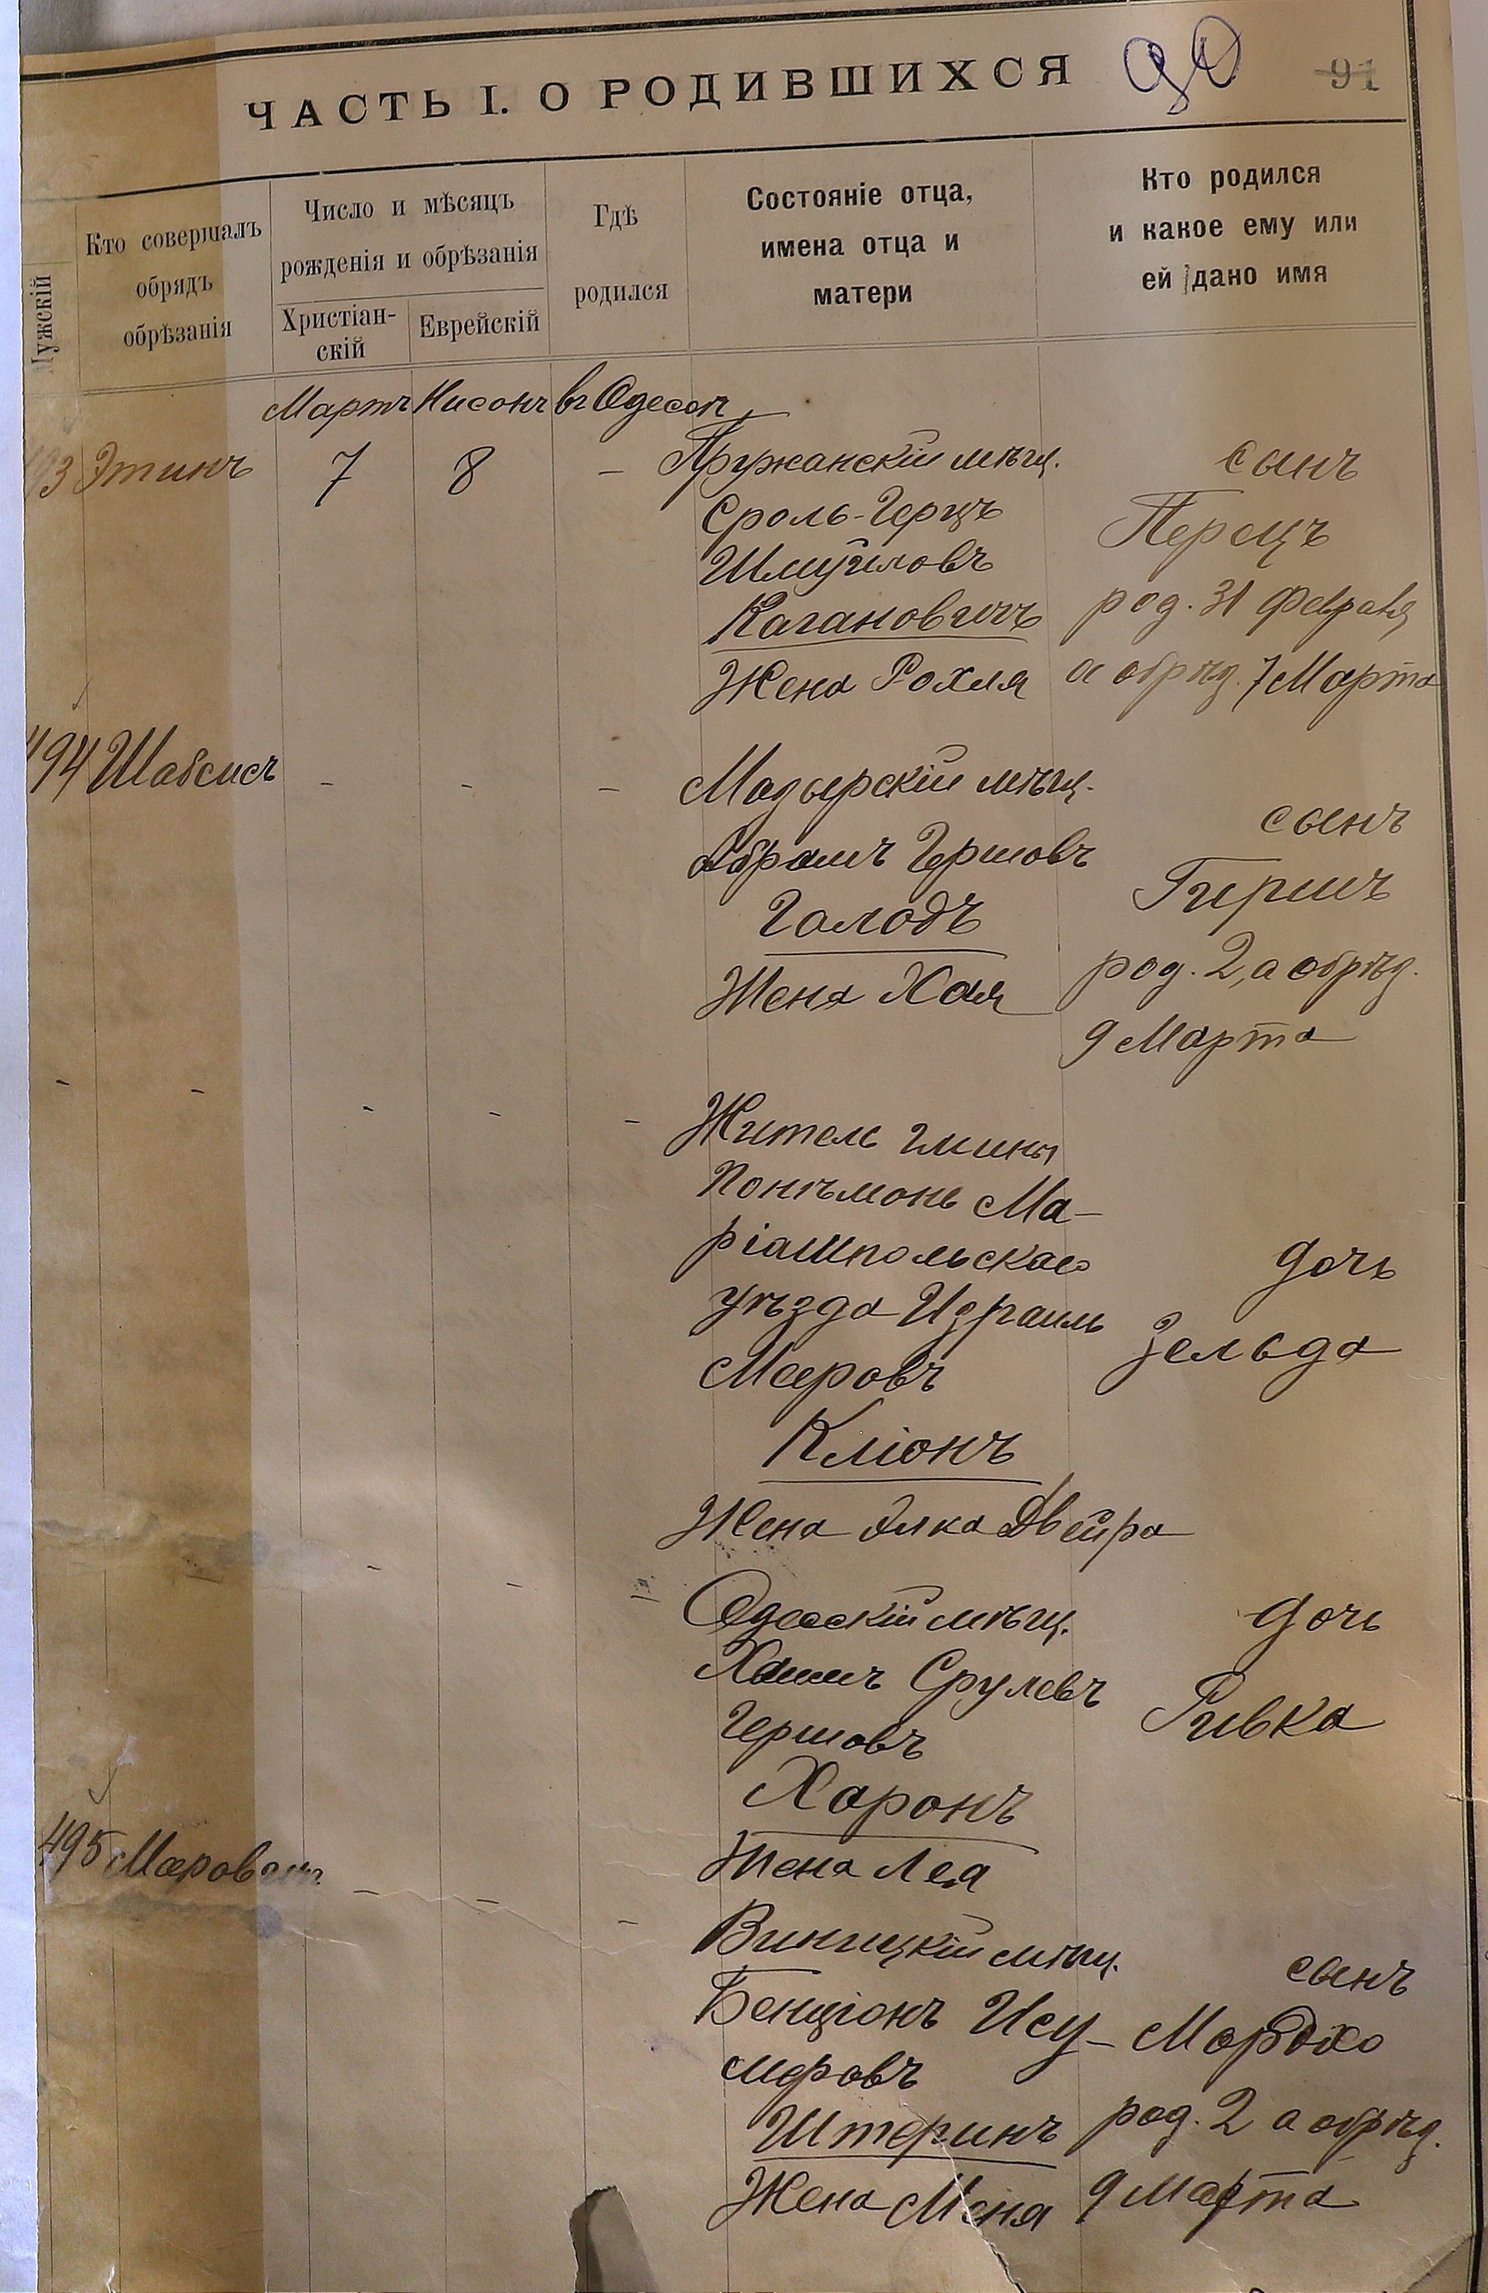 ЧАСТЬ I. О РОДИВШИХСЯ
90
91
Мужскій
Кто совершалъ
обрядъ
обрѣзанія
Число и мѣсяцъ
рожденія и обрѣзанія
Христіан-
скій
Еврейскій
Гдѣ
родился
Состояніе отца,
имена отца и
матери
Кто родился
и какое ему или
ей дано имя
Мартъ Нисонъ въ Одессѣ
93 Этинъ 7 8 – Пружанскій мѣщ.
Сроль-Герцъ
Шмуйловъ
Кагановичъ
Жена Рохля
сынъ
Перецъ
род. 31 Февраля
а обрѣз. 7 Марта
494 Шабсисъ - - – Мозырскій мѣщ.
Абрамъ Гершовъ
Голодъ
Жена Хая
сынъ
Гершъ
род. 2, а обрѣз.
9 Марта
- - - - – Житель гмины
Понѣмонь Ма-
ріампольскаго
уѣзда Израиль
Мееровъ
Кліонъ
Жена Элка Двейра
дочь
Зельда
- - – Одесскій мѣщ.
Хаимъ Срулевъ
Гершовъ
Харонъ
Жена Лея
дочь
Ривка
495 Мееровичъ – – – Виницкій мѣщ.
Бенціонъ Усу-
меровъ
Штеринъ
Жена Меня
сынъ
Мордхо
род. 2 а обрѣз.
9 Марта